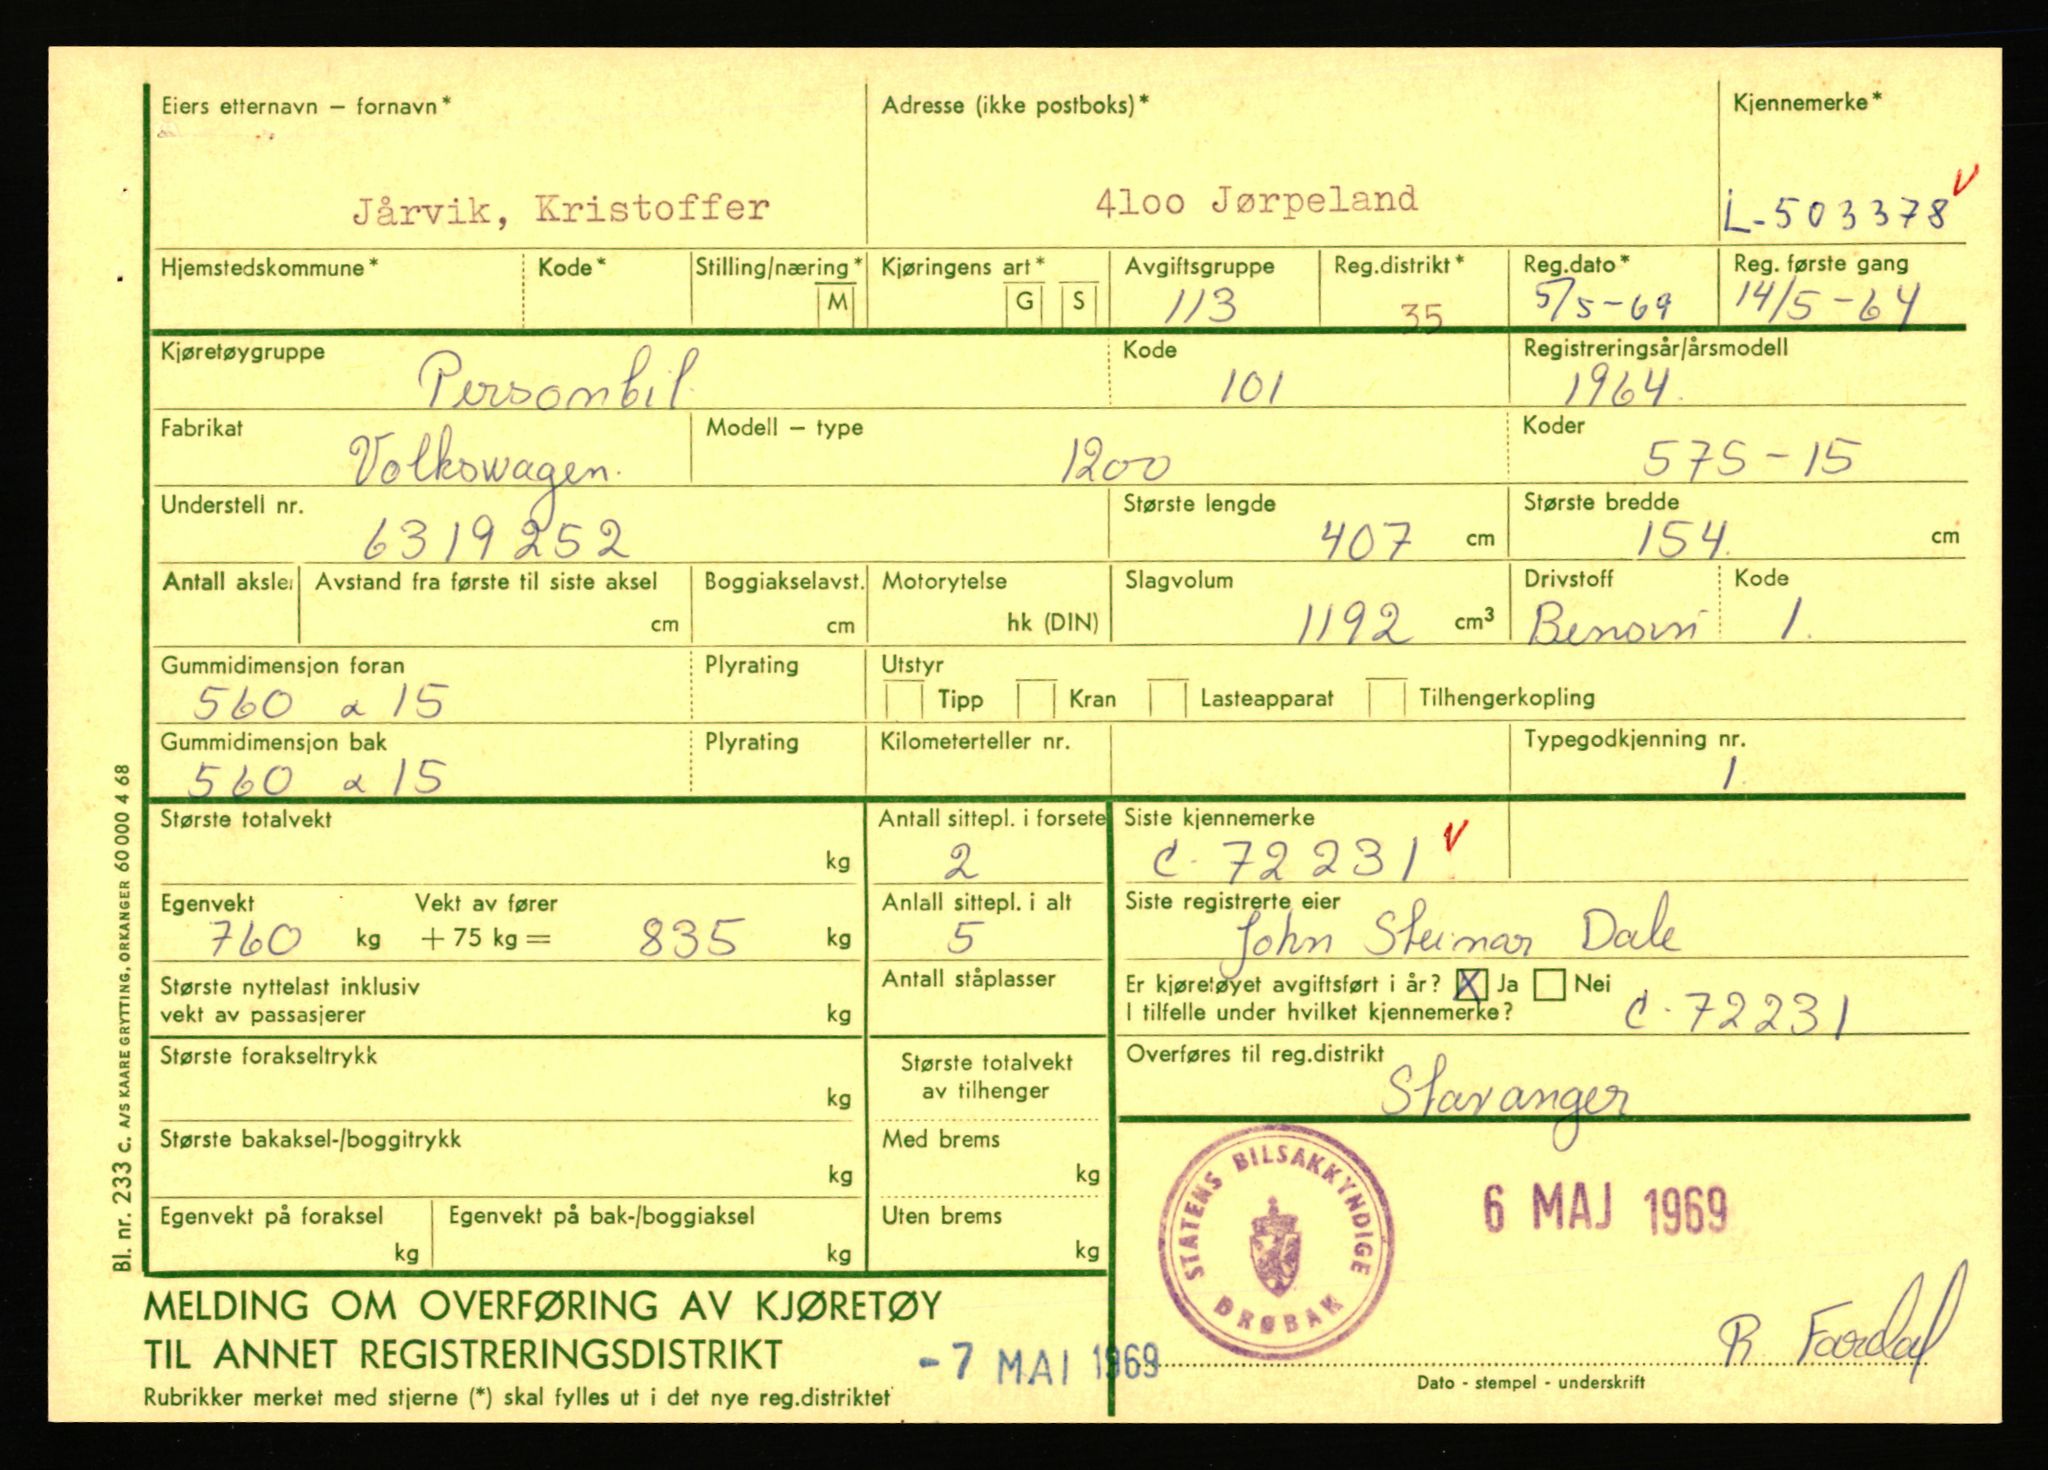 Eiers etternavn – fornavn* Adresse (ikke postboks)* Kjennemerke*
Jårvik, Kristoffer 4loo Jørpeland L-503378 V
Hjemstedskommune* Kode* Stilling/næring* Kjøringens art* Avgiftsgruppe Reg.distrikt* Reg.dato* Reg. første gang
M G S 113 35 5/5-69 14/5-64
Kjøretøygruppe Kode Registreringsår/årsmodell
Personbil 101 1964.
Fabrikat Modell – type Koder
Volkswagen. 1200 575-15
Understell nr. Største lengde Største bredde
6319252 407 cm 154. cm
Antall aksler Avstand fra første til siste aksel Boggiakselavst. Motorytelse Slagvolum Drivstoff Kode
cm cm hk (DIN) 1192 cm³ Bensin 1.
Gummidimensjon foran Plyrating Utstyr
560 x 15 Tipp Kran Lasteapparat Tilhengerkopling
Gummidimensjon bak Plyrating Kilometerteller nr. Typegodkjenning nr.
560 x 15 1.
Største totalvekt Antall sittepl. i forsete Siste kjennemerke
kg 2 C-72231 V
Egenvekt Vekt av fører Anlall sittepl. i alt Siste registrerte eier
760 kg + 75 kg = 835 kg 5 John Steinar Dale
Største nyttelast inklusiv Antall ståplasser Er kjøretøyet avgiftsført i år? X Ja Nei
vekt av passasjerer kg I tilfelle under hvilket kjennemerke? C-72231
Største forakseltrykk Største totalvekt Overføres til reg.distrikt
kg av tilhenger Stavanger
Største bakaksel-/boggitrykk Med brems
kg kg
STATENS BILSAKKYNDIGE
DRØBAK
6 MAJ 1969
Egenvekt på foraksel Egenvekt på bak-/boggiaksel Uten brems
kg kg kg
MELDING OM OVERFØRING AV KJØRETØY
TIL ANNET REGISTRERINGSDISTRIKT
-7 MAI 1969
R Fardal
Dato - stempel - underskrift
Rubrikker merket med stjerne (*) skal fylles ut i det nye reg.distriktet
Bl. nr. 233 C. A/S KAARE GRYTTING, ORKANGER 60 000 4 68